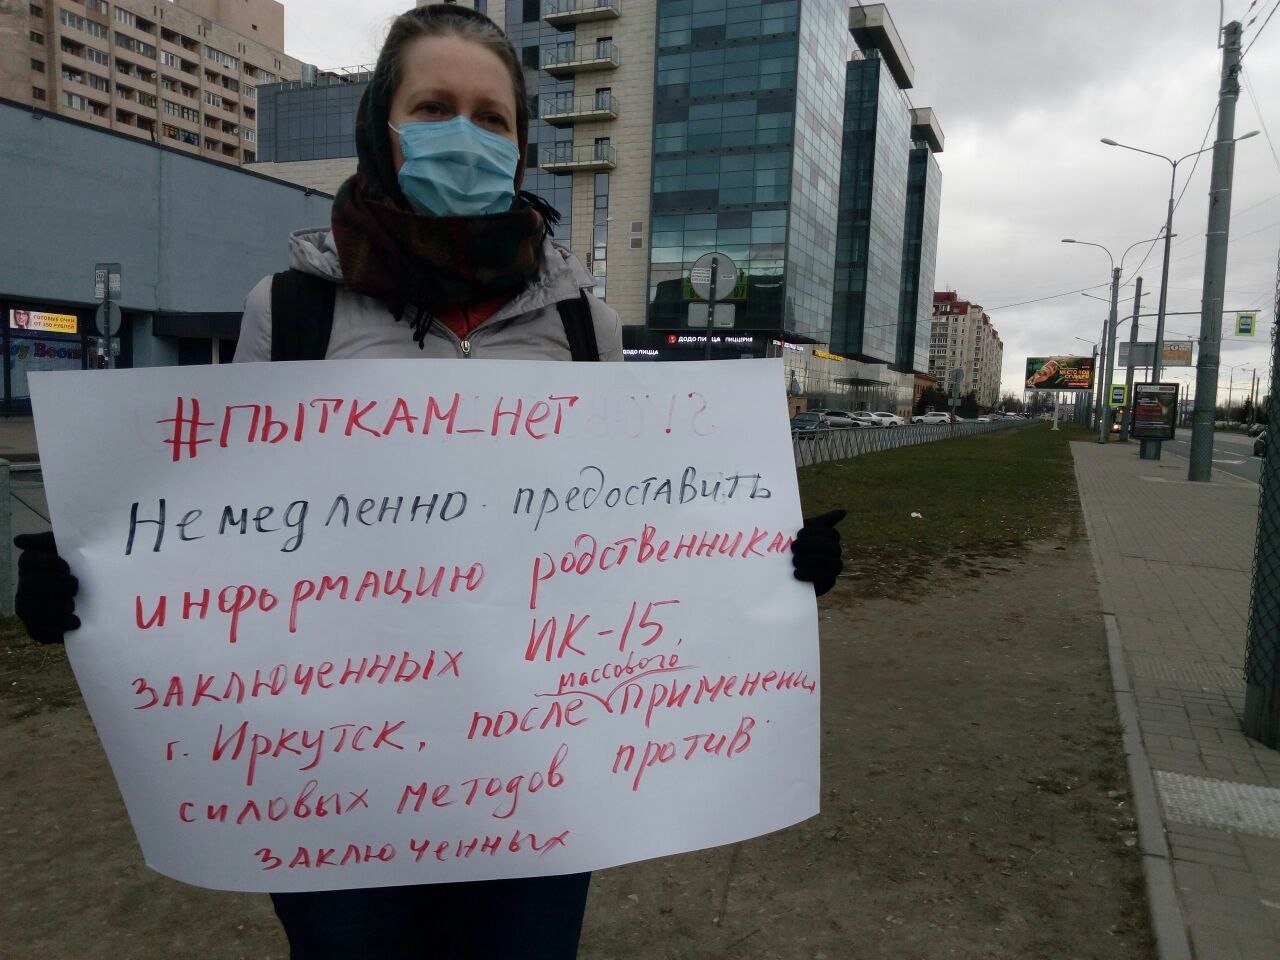 #ПЫТКАМ_НЕТ
Немедленно предоставить
информацию родственникам
заключенных ИК-15,
массового
г. Иркутск, после применени
силовых методов против
заключенных
ГОТОВЫЕ ОЧКИ
ОТ 350 РУБЛЕЙ
ДОДО ПИЦЦА
ДОДО ПИЦЦА ПИЦЦЕРИЯ